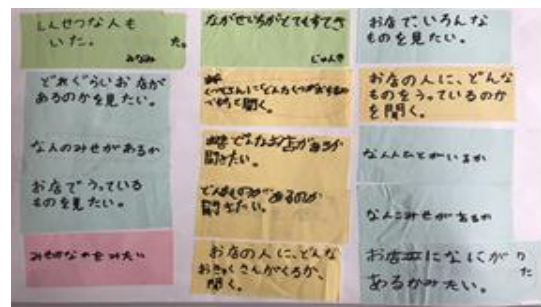 しんせつな人も
いた。
みなみ
た。
どれぐらいお店が
あるのかを見たい。
なんのみせがあるか
お店でうっている
ものを見たい。
みせのなかをみたい
ながせいちがとてもすてき
じゅんき
で聞く。
どんなお店があるか
聞きたい。
あるのか
聞きたい。
お店の人に、どんな
おきゃくさんがくるか、
聞く。
お店で、いろんな
ものを見たい。
お店の人に、どんな
ものをうっているのか
を聞く。
なん人ひとがいるか
なんこみせがあるか
お店になにが
あるかみたい。